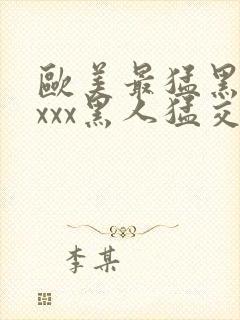 歐美最猛黑
xxx黑人猛交
李某